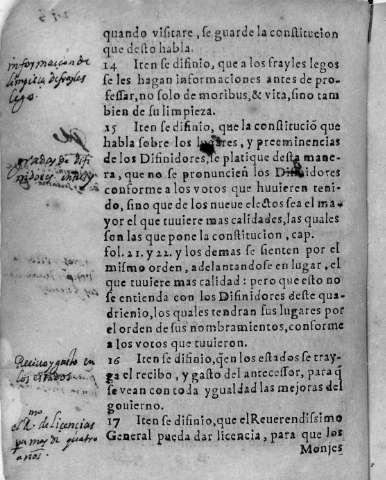 quando visitare, se guarde la constitucion
que desto habla.
informacion de
limpieza de frayles
legos.
14 Iten se difinio, que a los frayles legos
se les hagan informaciones antes de pro-
fessar, no solo de moribus, & vita, sino tam
bien de su limpieza.
15 Iten se difinio, que la constituciõ que
habla sobre los lugares, y preeminencias
de los Difinidores, se platique desta mane-
ra, que no se pronuncien los Difinidores
conforme a los votos que huuieren teni-
do, sino que de los nueue electos sea el ma
yor el que tuuiere mas calidades, las quales
son las que pone la constitucion, cap.
fol. 21. y 22. y los demas se sienten por el
mismo orden, adelantandose en lugar, el
que tuuiere mas calidad: pero que esto no
se entienda con los Difinidores deste qua-
drienio, los quales tendran sus lugares por
el orden de sus nombramientos, conforme
a los votos que tuuieron.
Reciuo y gasto en
los estados
16 Iten se difinio, q̃ en los estados se tray-
ga el recibo, y gasto del antecessor, para q̃
se vean con toda ygualdad las mejoras del
gouierno.
el R.mo de licencias
de quatro
años.
17 Iten se difinio, que el Reuerendissimo
General pueda dar licencia, para que los
Monjes